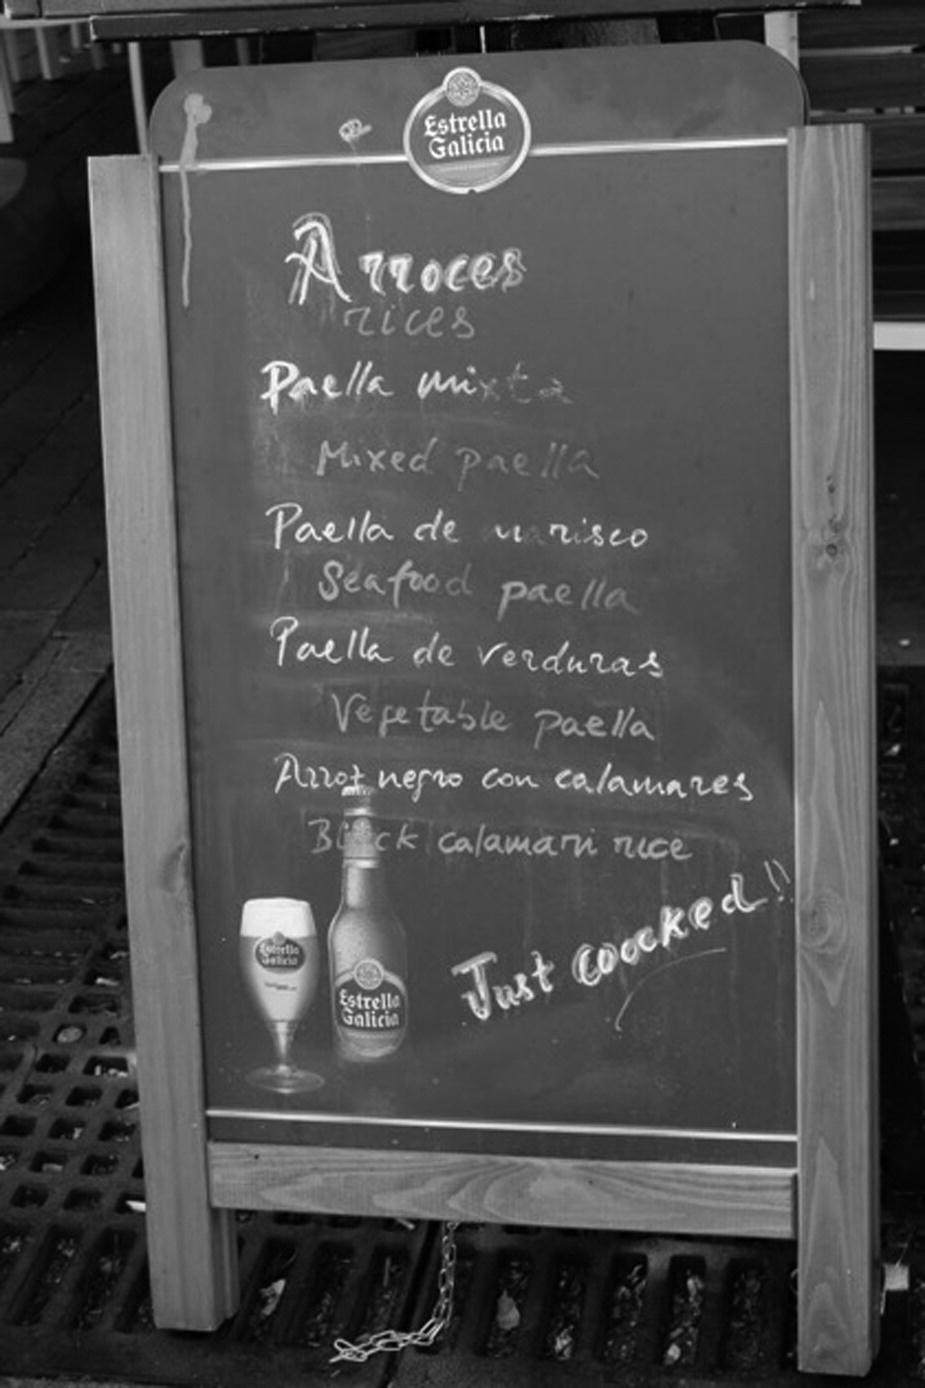 Estrella
Galicia
Arroces
rices
Paella mixta
Mixed paella
Paella de marisco
Seafood paella
Paella de verduras
Vegetable paella
Arroz negro con calamares
Black calamari rice
Just coocked!!
Estrella
Galicia
Estrella
Galicia